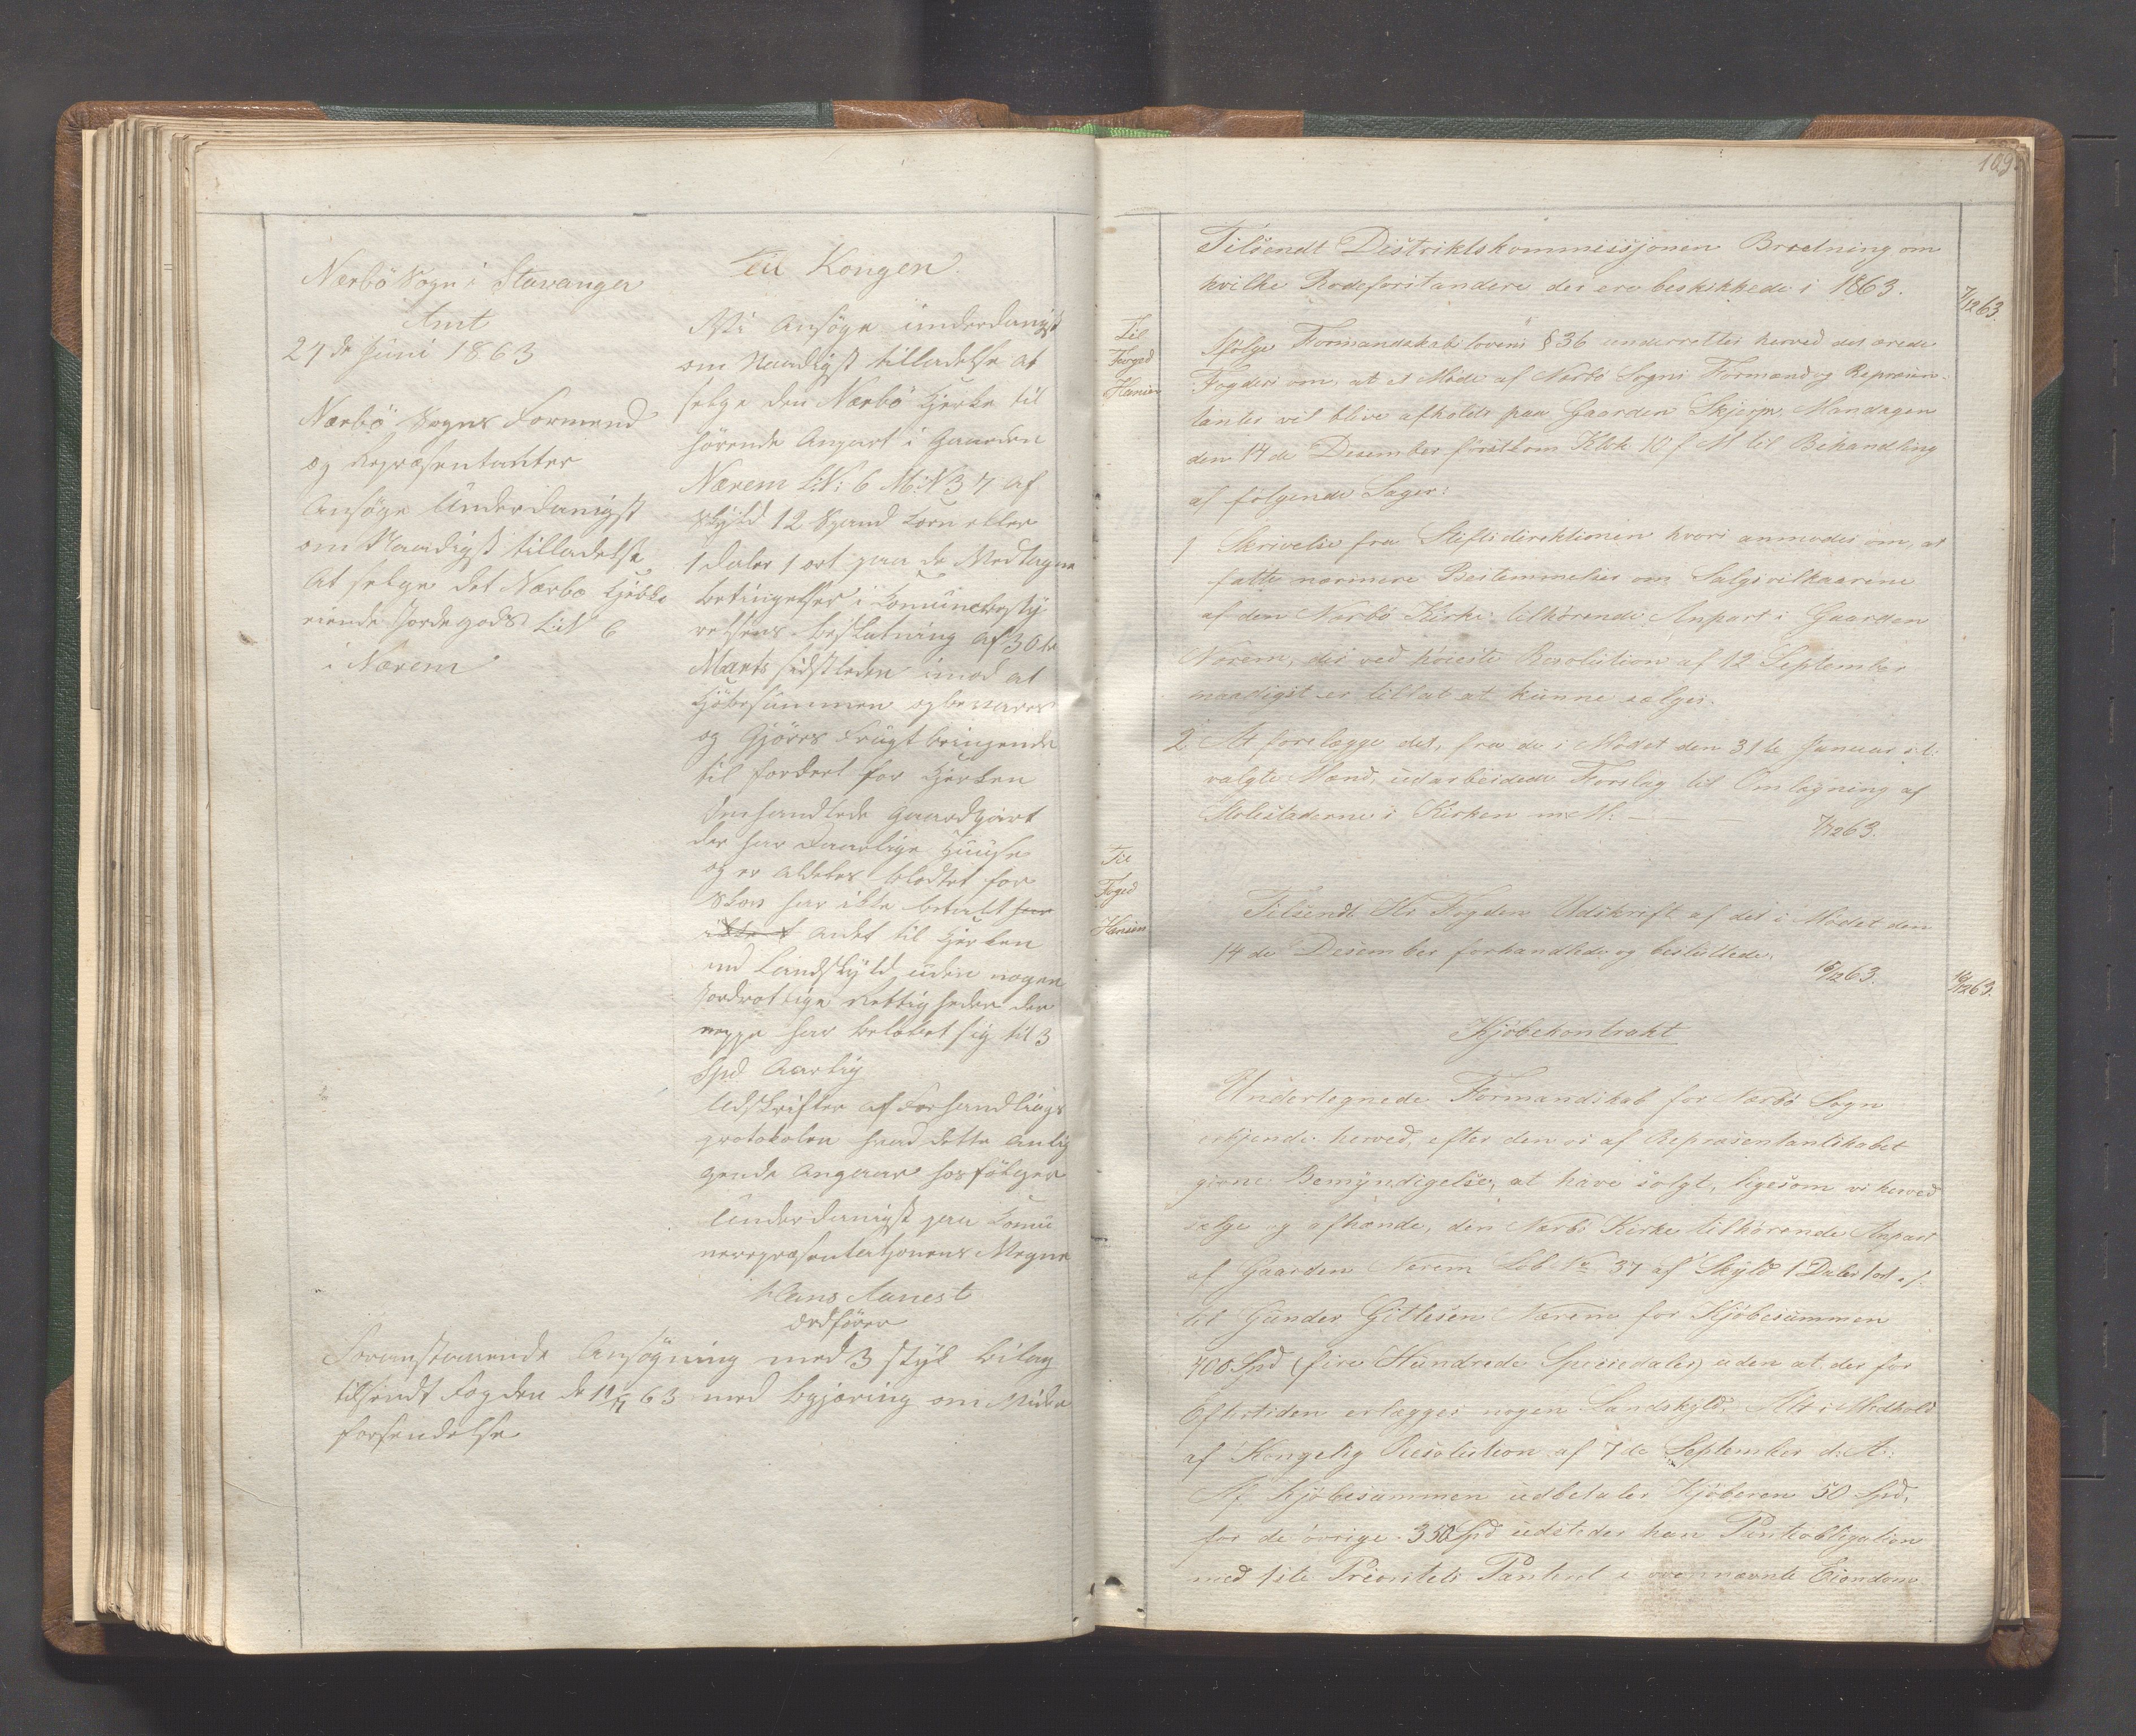 Nærbö Sogn i Stavanger
Amt
27de Juni 1863
Nærbö Sogns Formend
og Repræsentanter
Ansöge Underdanigst
om Naadigst tilladelse
At selge det Nærbø Kjerke
eiende Jordegods LN 6
i Nærem
Til Kongen.
Vi Ansöge underdanigst
om Naadigst tilladelse at
selge den Nærbö Kjerke til
hörende Anpart i Gaarden
Nærem LN: 6 M:N 37 af
Skyld 12 Spand Korn eller
1 daler 1 ort paa de Medtagne
betingelser i Komunebesty
relsens beslutning af 30te
Marts sidstleden imod at
Kjöbesummen opbevares
og Gjöres Frugtbringende
til fordeel for Kjerken
Omhandlede Gaardpart
der har Daarlige Huuse
og er aldeles blottet for
Skov har ikke betalt har
ikke t andet til Kjerken
end Landskyld uden nogen
Jordrotlige Rettigheder der
neppe har beløbet sig til 3
Spd Aarlig
Udskrifter af Forhandlings
protokolen hvad dette anlig
gende Angaar hosfölger
Underdanigst paa Komu
nerepræsentatjonens Vegne
Hans Auuest
ordförer
Foranstaaende Ansögning med 3 styk bilag
tilsendt Fogden de 11/7 63 med begjæring om Videre
forsendelse
109.
Tilsendt Distriktskommissjonen Bretning om
hvilke Rodeforstandere der ere beskikkede i 1863.
7/12 63.
Til
Foged
Hansen
Ifölge Formandskabslovens § 36 underrettes herved det ærede
Fogderi om, at et Möde af Nærbö Sogns Formænd og Repræsen-
tanter vil blive afholdt paa Gaarden Skjerpe, Mandagen
den 14de Desember förstkom Klok 10 f M til Behandling
af følgende Sager:
1 Skrivelse fra Stiftsdirektionen hvori anmodes om, at
fatte nærmere Bestemmelser om Salgsvilkaarene
af den Nærbö Kirke tilhörende Anpart i Gaarden
Nærem, der ved höieste Resolution af 12 September
naadigst er tillat at kunne sælges.
2 At forelægge det, fra de i Mödet den 31te Januar
valgte Mænd, udarbeidede Forslag til Omlægning af
Stolestaderne i Kirken m M: —
7/12 63.
Til
Foged
Hansen
Tilsendt Hr Fogden Udskrift af det i Mödet den
14de Desember forhandlede og besluttede.
16/12 63.
16/12 63.
Kjöbekontrakt
Undertegnede Formandskab for Nærbö Sogn
erkjende herved, efter den os af Repræsentantskabet
givne Bemyndigelse, at have solgt, ligesom vi herved
sælge og afhænde, den Nærbö Kirke tilhörende Anpart
af Gaarden Nærem Löb No 37 af Skyld 1 Daler 1 ort
til Gunder Gitlesen Nærem for Kjöbesummen
400 Spd (fire Hundrede Speciedaler) uden at der for
Eftertiden erlægges nogen Landskyld. Alt i Medhold
af Kongelig Resolution af 7de September d: A:
Af Kjöbesummen udbetaler Kjöberen 50 Spd,
for de övrige 350 Spd udsteder han Panteobligation
med 1ste Prioritets Panteret i ovennævnte Eiendom